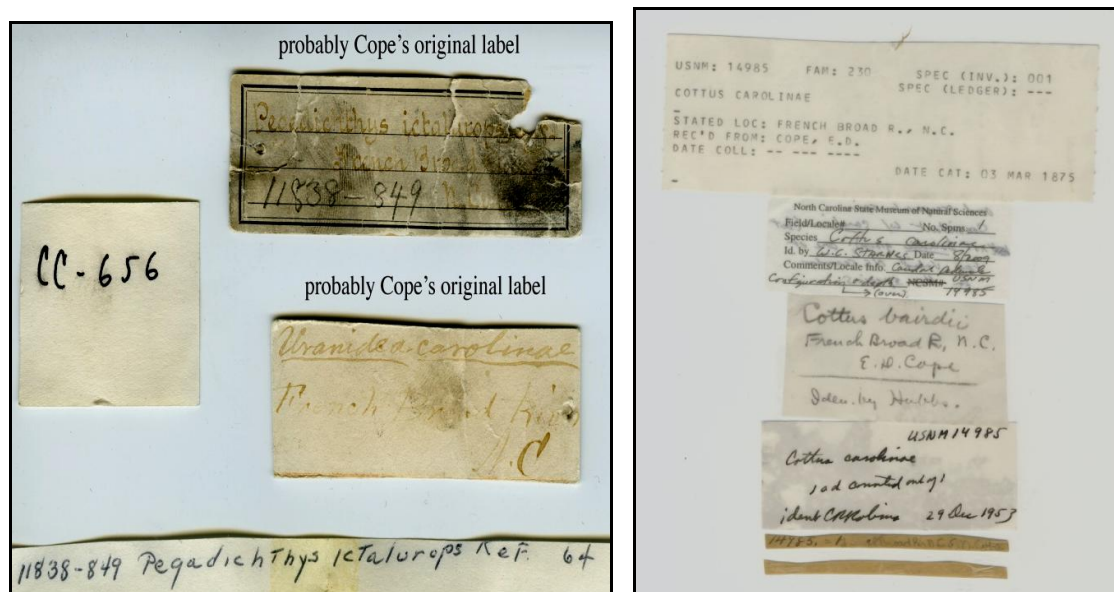 probably Cope's original label
Pegadichthys ictalurops
11838-849
CC-656
probably Cope's original label
Uranidea carolinae
French Broad River
.C
11838-849 Pegadichthys Ictalurops Ref. 64
USNM: 14985 FAM: 230 SPEC (INV.): 001
SPEC (LEDGER): ---
COTTUS CAROLINAE
STATED LOC: FRENCH BROAD R., N.C.
REC'D FROM: COPE, E.D.
DATE COLL: -- --- ----
DATE CAT: 03 MAR 1875
North Carolina State Museum of Natural Sciences
Field/Locale# No. Spms. 1
Species Cottus carolinae
Id. by W.C. Starnes Date 8/2009
Comments/Locale Info.
configuration + depth NCSM# USNM
(over) 14985
Cottus bairdii
French Broad R, N.C.
E.D. Cope
Iden. by Hubbs.
USNM 14985
Cottus carolinae
ident CR Robins 29 Dec 1953
14985